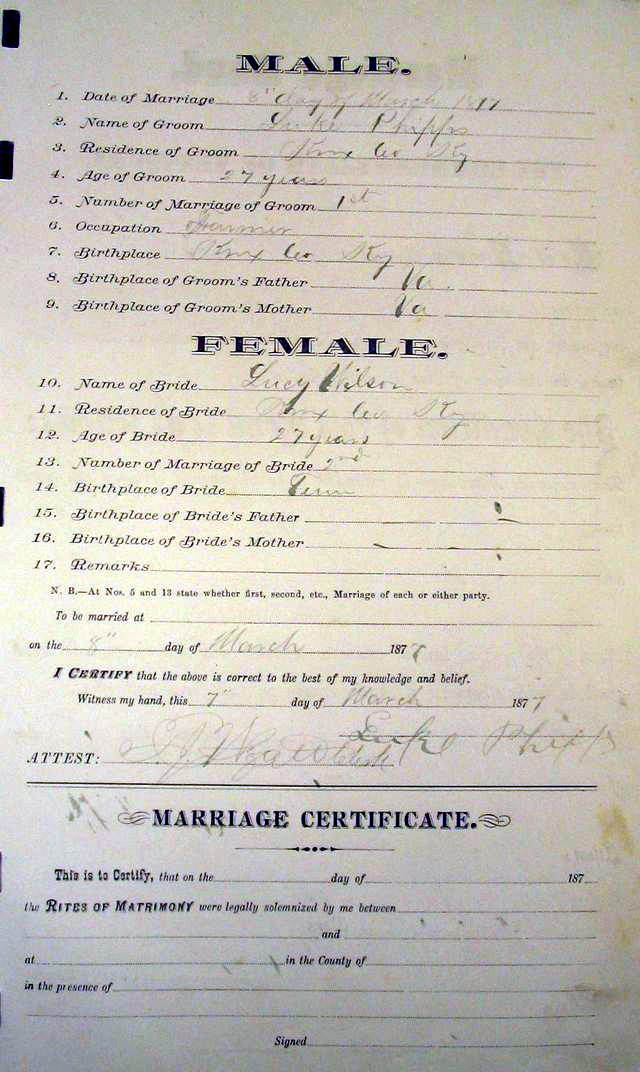 MALE.
1. Date of Marriage 8" day of March 1877
2. Name of Groom Luke Phipps
3. Residence of Groom Knox Co Ky
4. Age of Groom 27 years
5. Number of Marriage of Groom 1st
6. Occupation Farmer
7. Birthplace Knox Co Ky
8. Birthplace of Groom's Father Va.
9. Birthplace of Groom's Mother Va
FEMALE.
10. Name of Bride Lucy Wilson
11. Residence of Bride Knox Co Ky
12. Age of Bride 27 years
13. Number of Marriage of Bride 2nd
14. Birthplace of Bride Tenn
15. Birthplace of Bride's Father
16. Birthplace of Bride's Mother
17. Remarks
N. B.—At Nos. 5 and 13 state whether first, second, etc., Marriage of each or either party.
To be married at
on the 8" day of March 1877
I CERTIFY that the above is correct to the best of my knowledge and belief.
Witness my hand, this 7" day of March 1877
Luke Phipps
ATTEST: Clerk
MARRIAGE CERTIFICATE.
This is to Certify, that on the day of 187
the RITES OF MATRIMONY were legally solemnized by me between
and
at in the County of
in the presence of
Signed